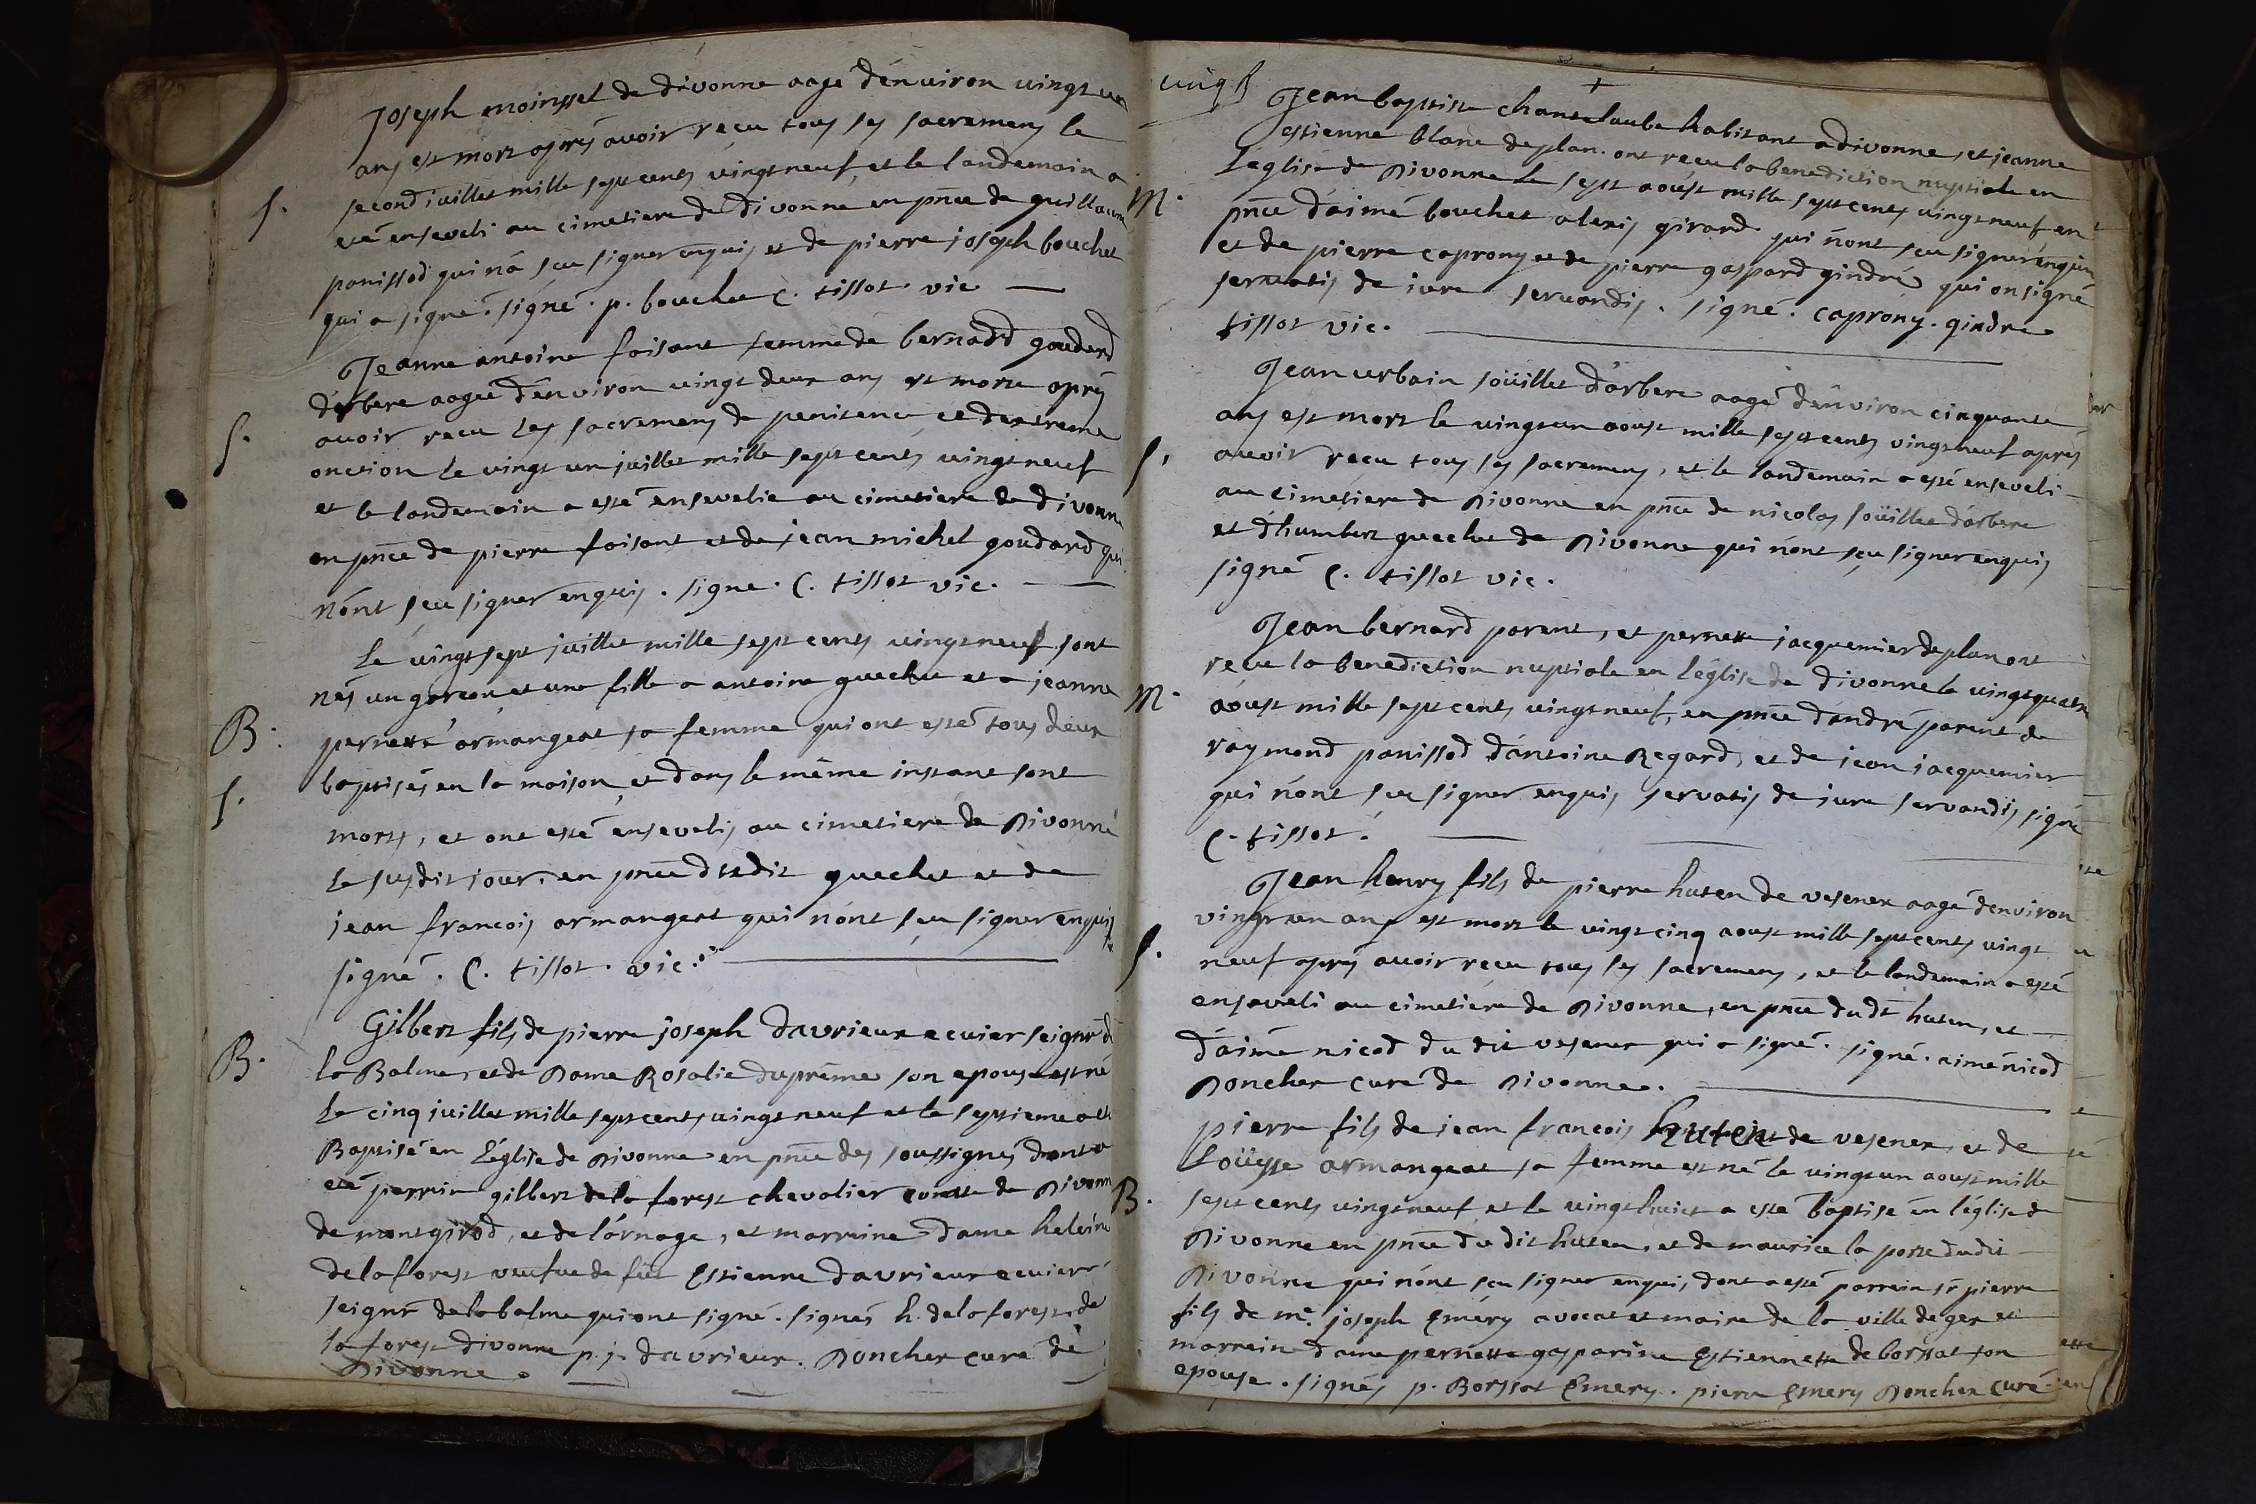 Joseph moinssel de divonne aagé d'environ vingt un
ans est mort après avoir reçu tous ses sacremens le
second juillet mille sept cents vingt neuf, et le landemain a
S. esté enseveli au cimetiere de divonne en pnce de guillaume
panissod qui n'a sçu signer enquis et de pierre joseph bouchet
qui a signé. signé. p. bouchet C. tissot. vic
Jeanne antoine foisant femme de bernadd goudard
d'arbere aagée d'environ vingt deux ans est morte après
S. avoir recu les sacremens de penitence et d'extreme
onction le vingt un juillet mille sept cents vingt neuf
et le landemain a esté ensevelie au cimetiere de divonne
en pnce de pierre foisant et de jean michel goudard qui
n'ont sçu signer enquis. signé. C. tissot vic.
Le vingt sept juillet mille sept cents vingt neuf sont
nés un garcon et une fille a antoine guechet et a jeanne
B. pernette armangeat sa femme qui ont esté tous deux
S. baptisés en la maison, et dans le même instant sont
morts, et ont esté ensevelis au cimetiere de Divonne
le susdit jour, en pnce dudit guechet et de
jean francois armangeat qui n'ont sçu signer enquis
signé. C. tissot. vic.
Gilbert fils de pierre joseph davrieux ecuier seignr de
B. la Balme, et de Dame Rosalie duprême son epouse est né
le cinq juillet mille sept cents vingt neuf et le septieme a esté
Baptisé en L'église de Divonne en pnce des soussignés dont a
été perrin gilbert de la forest chevalier comte de Divonne
de montgirod, et de l'arnage, et marraine dame heleine
de la forest veufve de fut Estienne davrieux ecuier
seignr de la balme qui ont signé. signés h. de la forest. de
la forest divonne p. j. davrieux. Doncher curé de
Divonne.
vingt
Jean baptiste chanteloube habitant a divonne, et jeanne
estienne blanc de plan. ont reçu la benediction nuptiale en
L'église de Divonne le sept aoust mille sept cents vingt neuf en
M. pnce d'aimé bouchet alexis girard qui n'ont sçu signer enquis
et de pierre caprony et de pierre gaspard gindre qui on signé
servatis de iure servandis. signé. caprony. gindre
tissot vic.
Jean urbain soüillet d'arbere aagé d'environ cinquante
ans est mort le vingt un aoust mille sept cents vingt neuf après
S. avoir reçu tous ses sacremens, et le landemain a esté enseveli
au cimetiere de Divonne en pnce de nicolas soüillet d'arbere
et d'humbert guechet de Divonne qui n'ont sçu signer enquis
signé C. tissot vic.
Jean bernard parent, et pernette jacquemier de plan ont
reçu la benediction nuptiale en L'église de divonne le vingt quatre
M. aoust mille sept cents vingt neuf, en pnce d'andré parent de
raymond panissod d'antoine Regard, et de jean jacquemier
qui n'ont sçu signer enquis servatis de iure servandis signé
C. tissot.
Jean henry fils de pierre huten de vesenex aagé d'environ
vingt un ans est mort le vingt cinq aoust mille sept cents vingt
S. neuf après avoir reçu tous ses sacremens, et le landemain a esté
enseveli au cimetiere de Divonne, en pnce dudt huten, et
d'aimé nicod du dit vesenex qui a signé. signé. aimé nicod
Doncher curé de Divonne.
pierre fils de jean francois huten de vesenex, et de
Loüyse armangeat sa femme est né le vingt un aoust mille
B. sept cents vingt neuf et le vingt huict a esté baptisé en l'église de
Divonne en pnce du dit huten, et de maurice la porte dudit
Divonne qui n'ont sçu signer enqui, dont a esté parrain sr pierre
fils de me. joseph Eméry avocat et maire de la ville de gex et
marraine dame pernette gasparine Estiennette de borssat son
epouse. signés p. Borssat Emery. pierre Emery Doncher curé